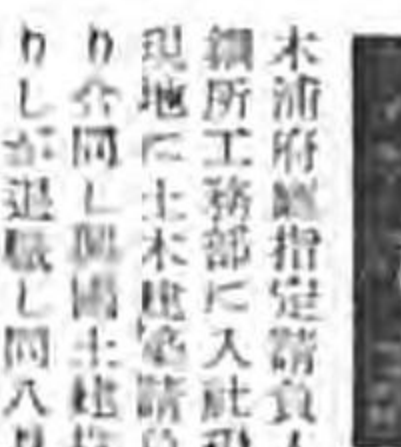 木浦府指定請負
鋼所工務部に入社
現地に土木建築請
り合同し土建
りしが退職し同八